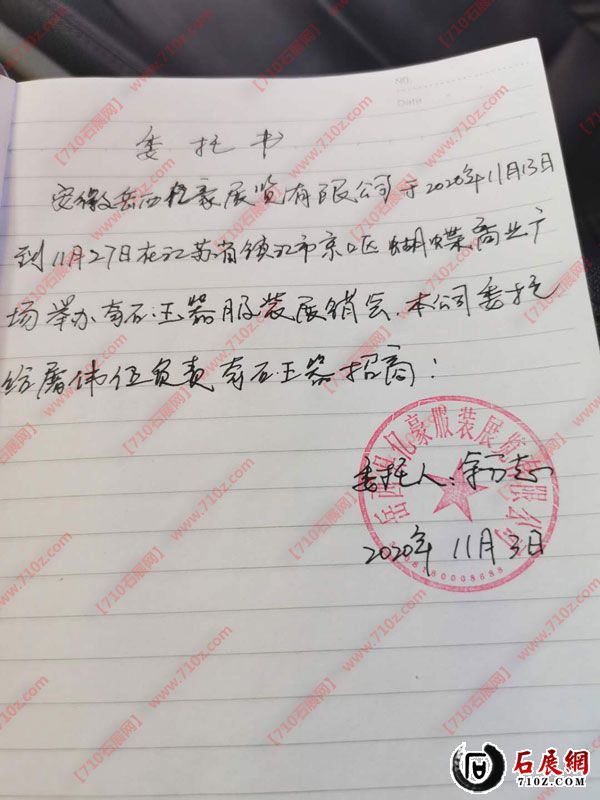 NO.
Date
委托书
安徽岳西程豪展览有限公司于2020年11月13日
到11月27日在江苏省镇江市京口区蝴蝶商业广
场举办奇石玉器服装展销会.本公司委托
给屠伟伍负责奇石玉器招商:
委托人:
2020年11月3日
【710石展网】www.710z.com
石展網
710z.com